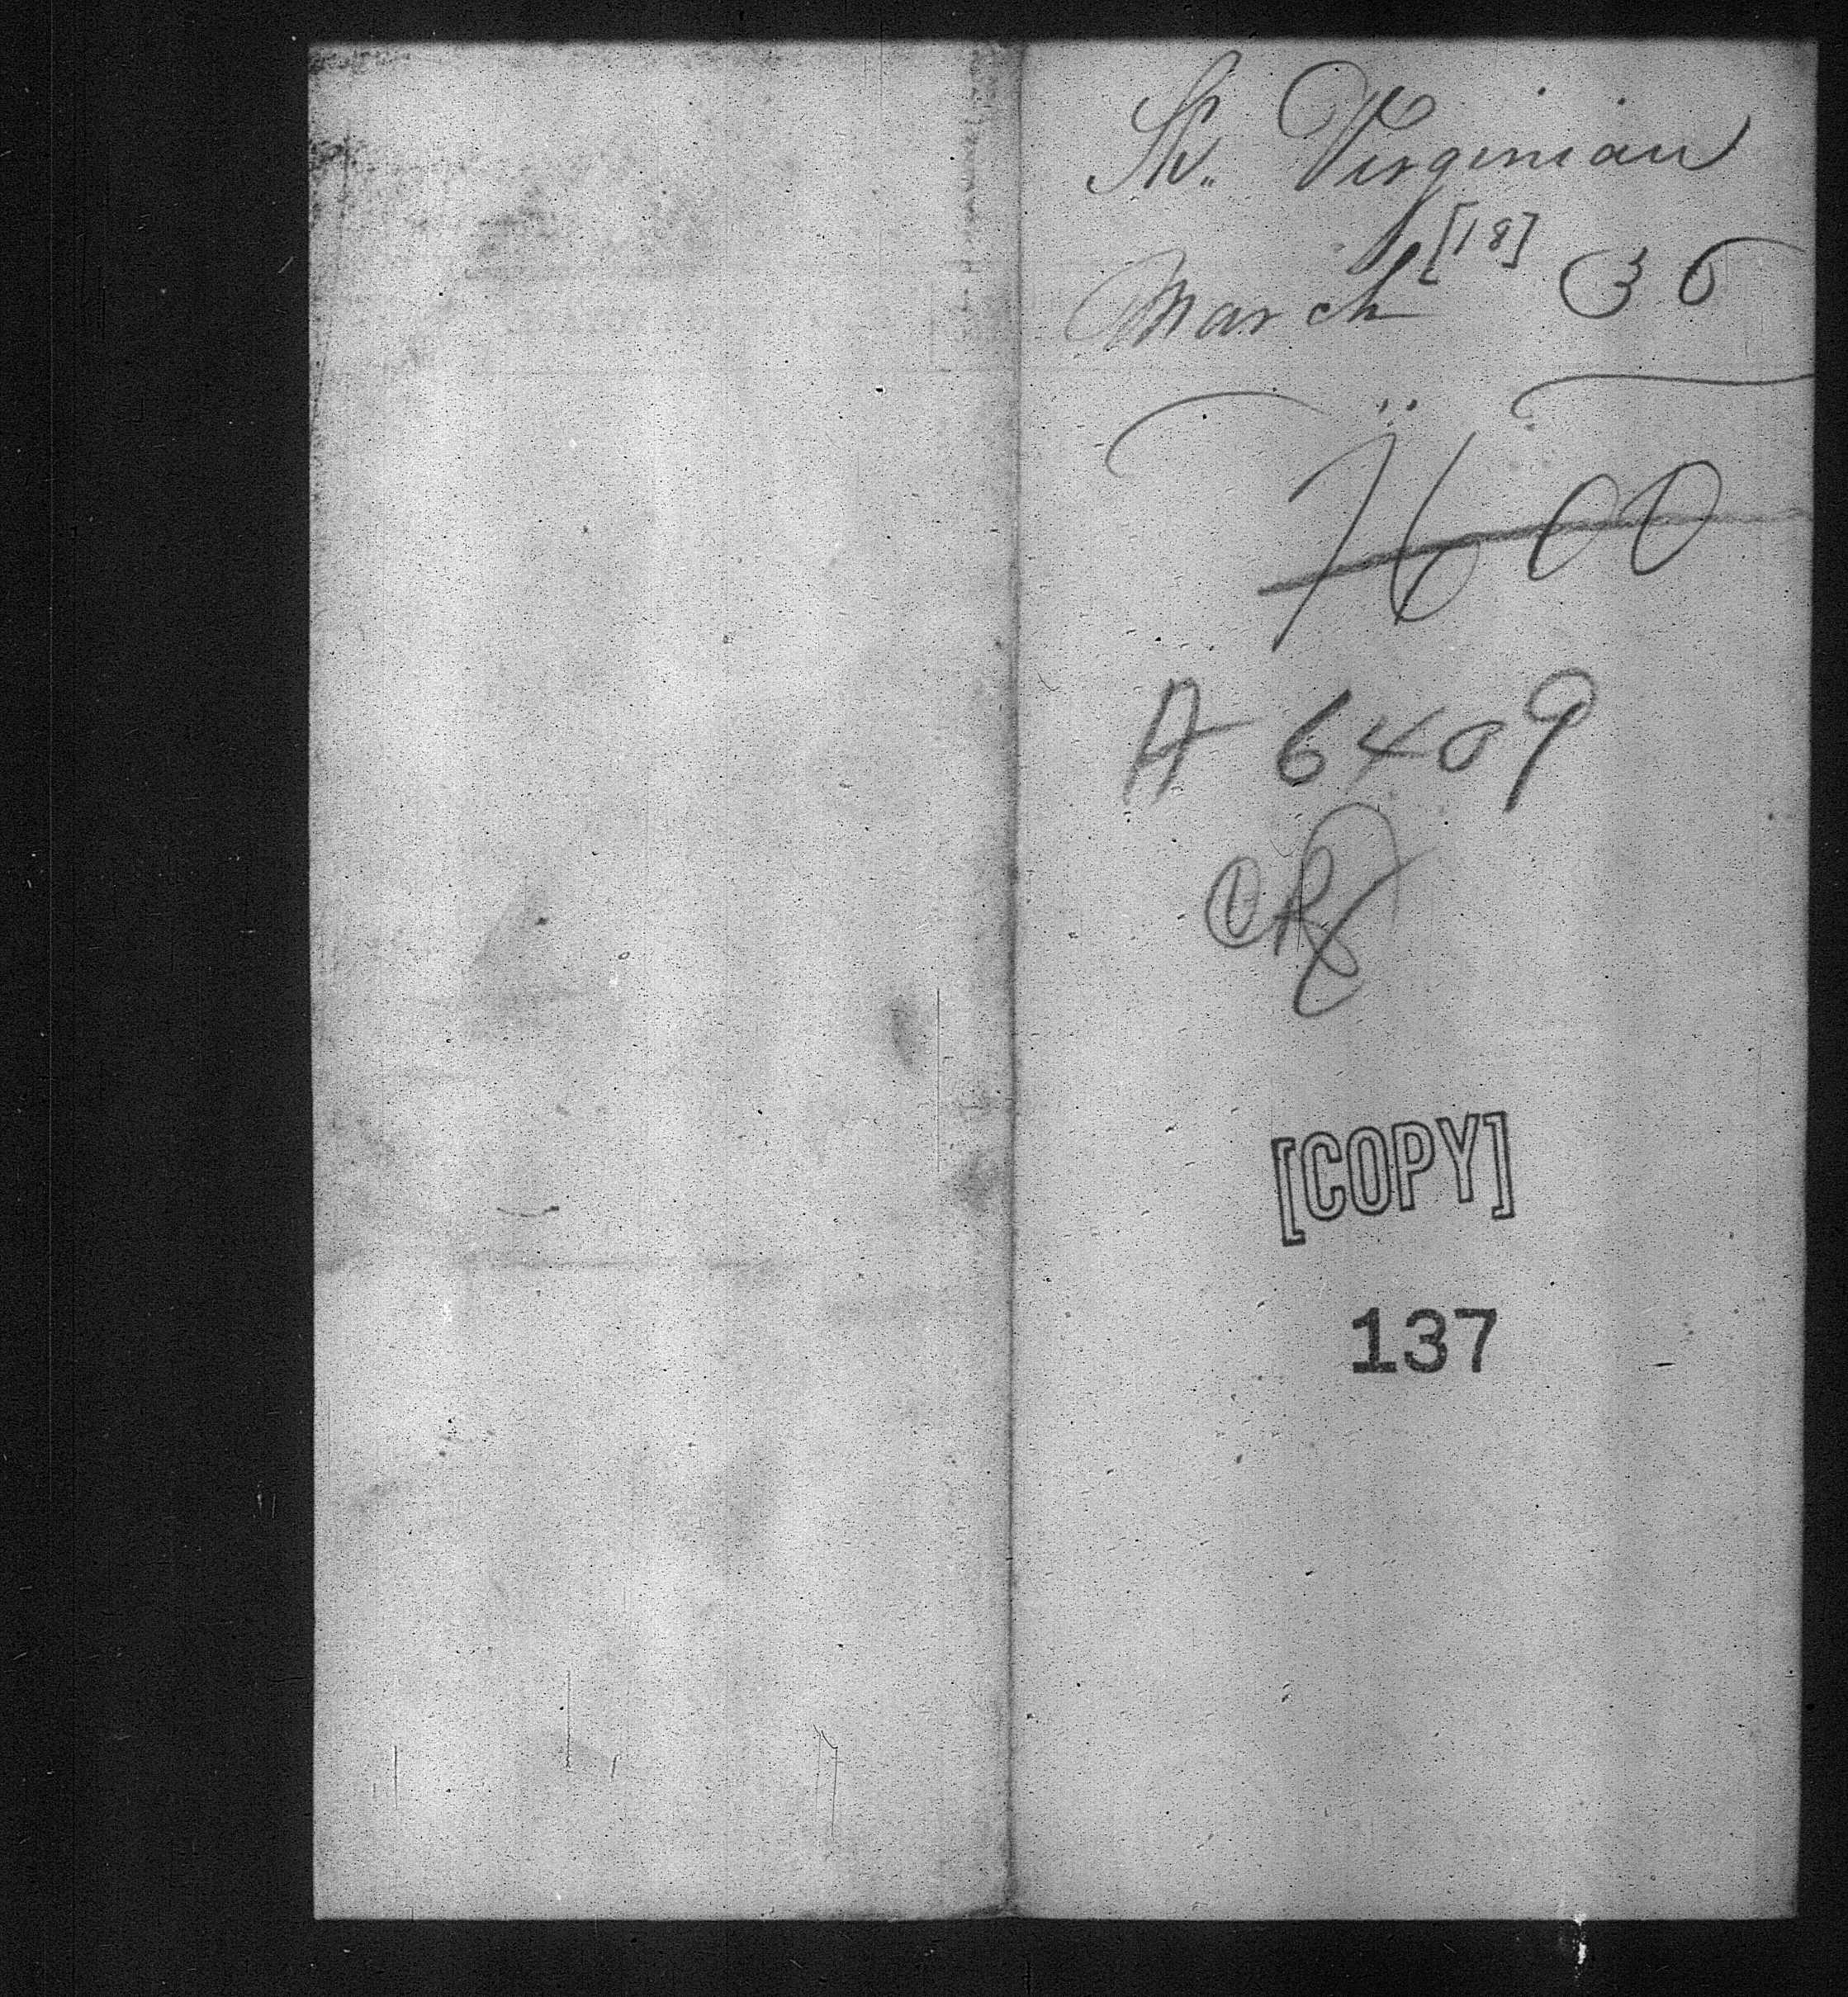 Sh. Virginian
March [18] 36
7600
A 6409
[COPY]
137